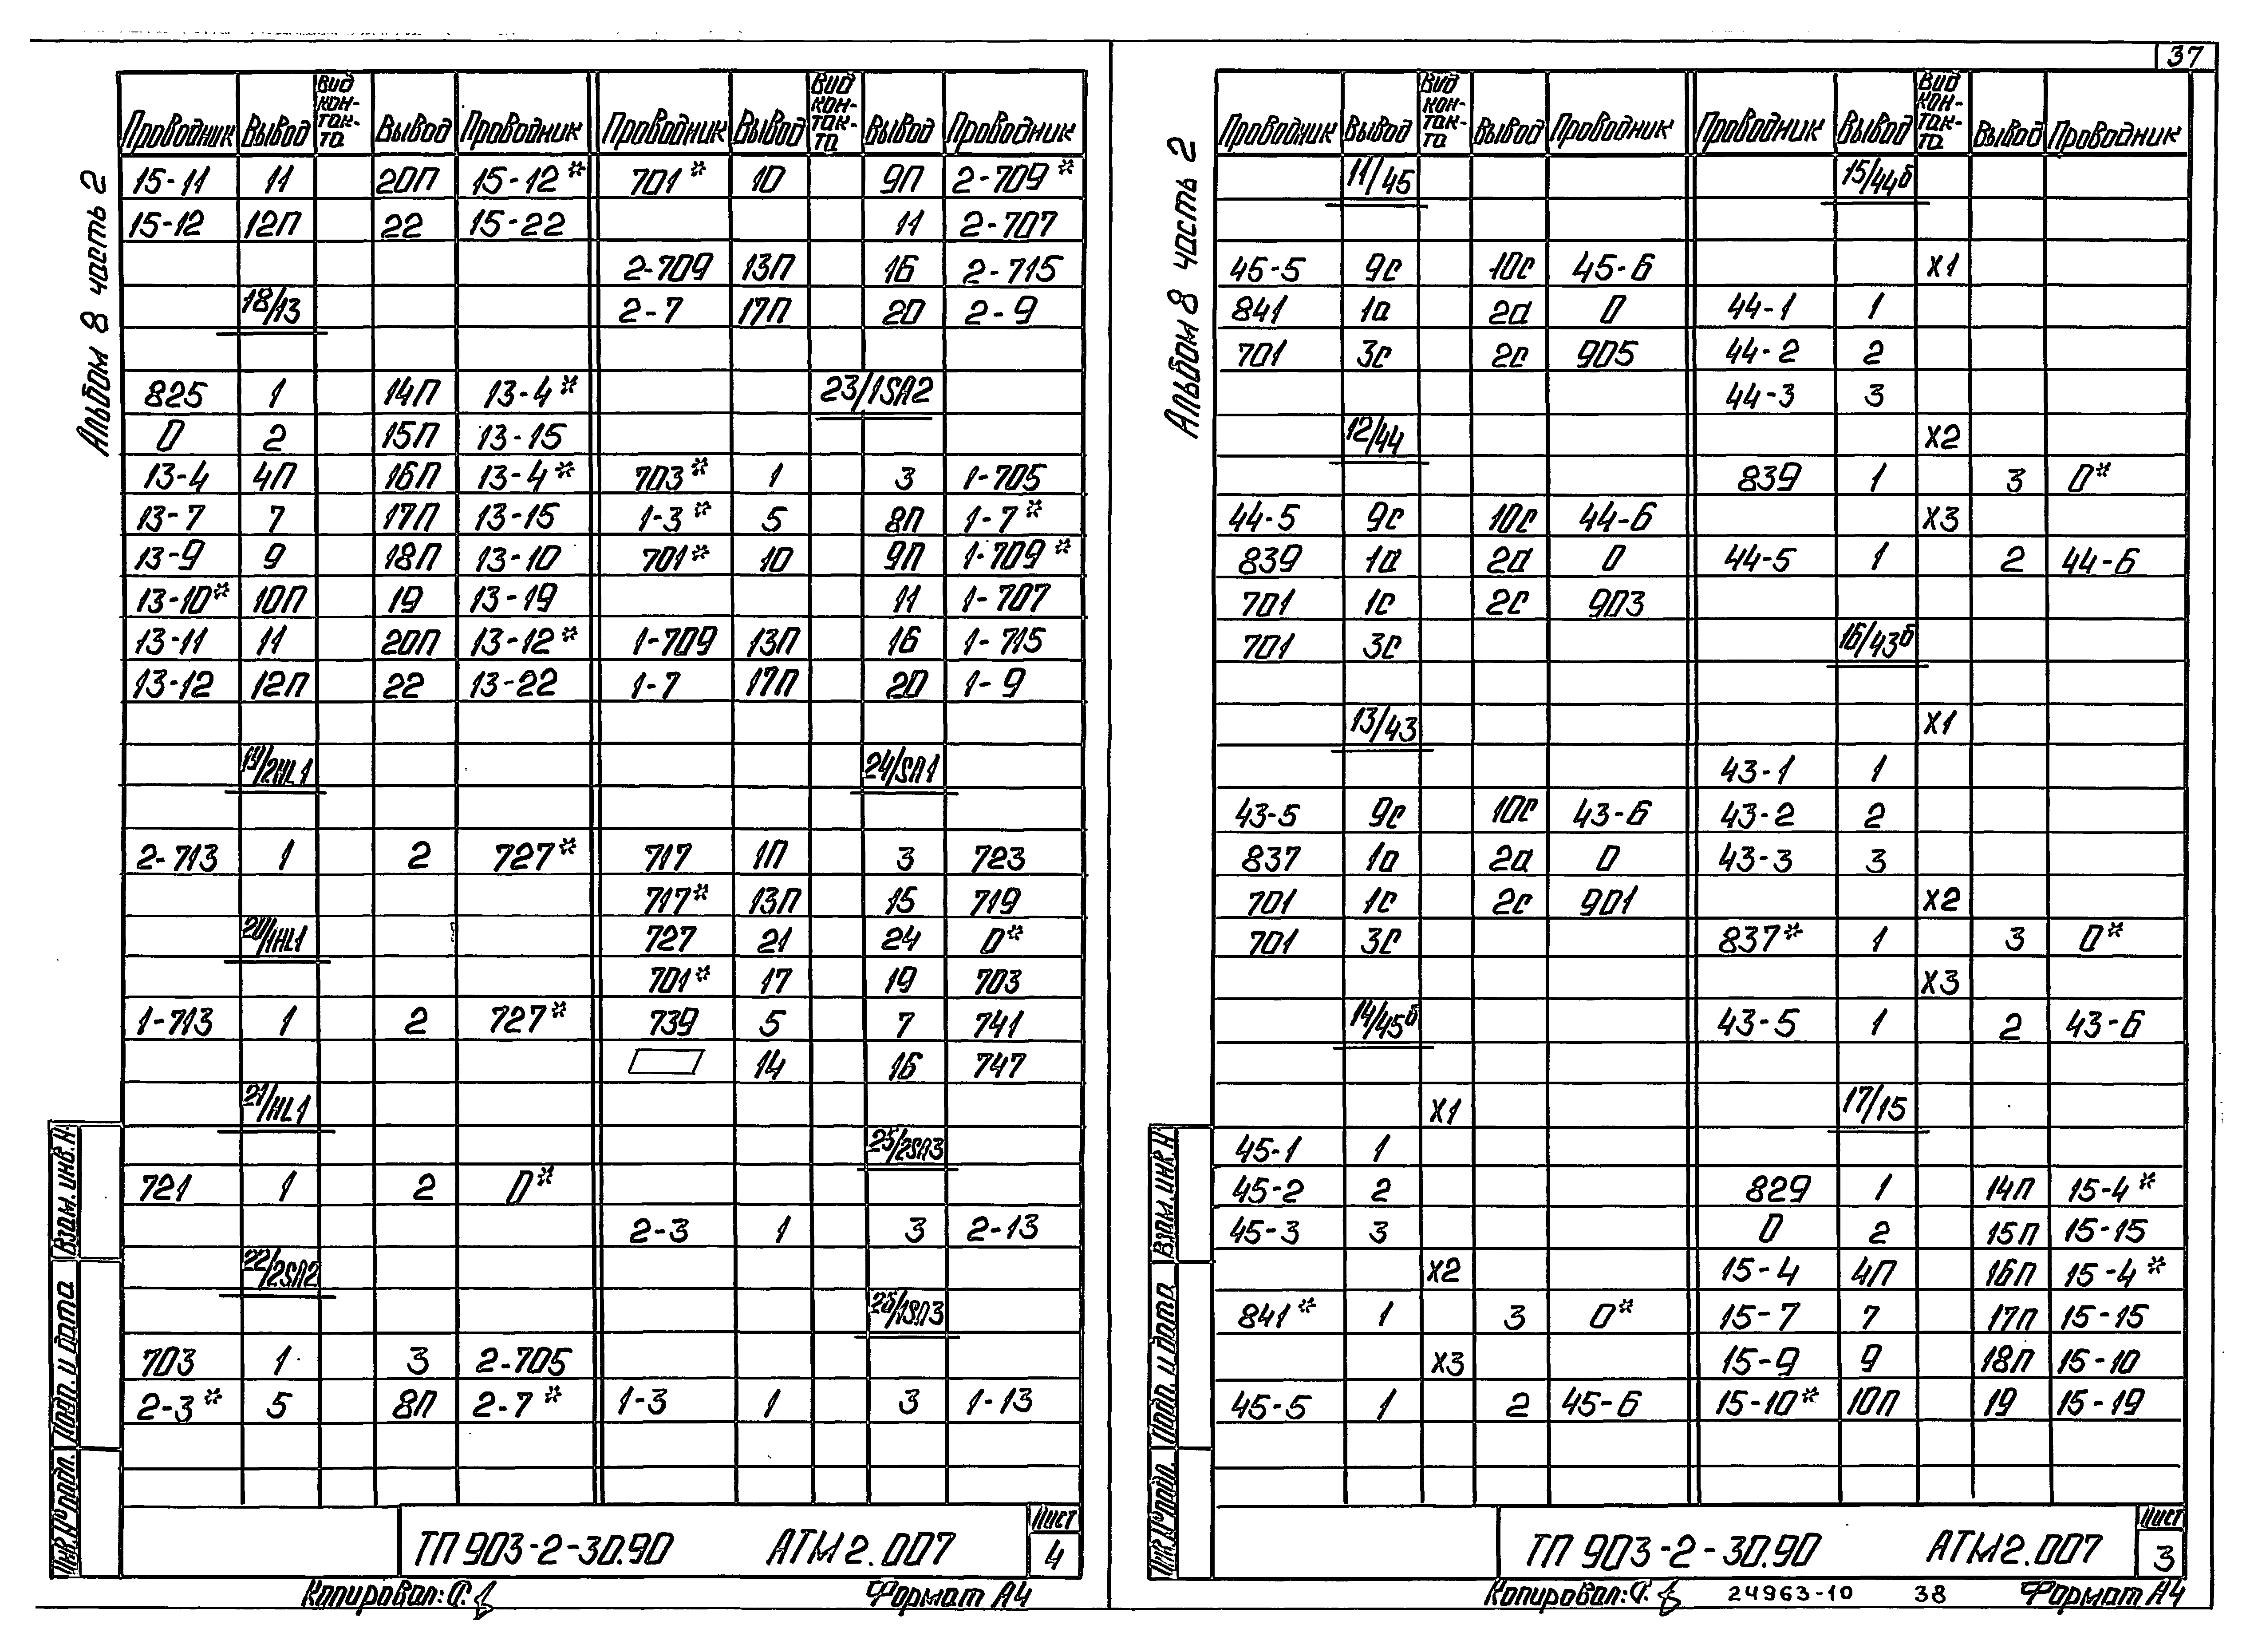 37
Альбом 8 часть 2
Проводник Вывод Вид кон-так-та Вывод Проводник Проводник Вывод Вид кон-так-та Вывод Проводник
15-11 11 20П 15-12* 701* 10 9П 2-709*
15-12 12П 22 15-22 11 2-707
2-709 13П 16 2-715
18/13 2-7 17П 20 2-9
825 1 14П 13-4* 23/1SA2
0 2 15П 13-15
13-4 4П 16П 13-4* 703* 1 3 1-705
13-7 7 17П 13-15 1-3* 5 8П 1-7*
13-9 9 18П 13-10 701* 10 9П 1-709*
13-10* 10П 19 13-19 11 1-707
13-11 11 20П 13-12* 1-709 13П 16 1-715
13-12 12П 22 13-22 1-7 17П 20 1-9
19/2HL1 24/SA1
2-713 1 2 727* 717 1П 3 723
717* 13П 15 719
20/1HL1 727 21 24 0*
701* 17 19 703
1-713 1 2 727* 739 5 7 741
14 16 747
21/HL1
25/2SA3
721 1 2 0*
2-3 1 3 2-13
22/2SA2
26/1SA3
703 1 3 2-705
2-3* 5 8П 2-7* 1-3 1 3 1-13
Взам. инв. Н
Подп. и дата
Инв. Н° подл.
ТП 903-2-30.90 АТМ2.007 Лист 4
Копировал: Формат А4
Альбом 8 часть 2
Проводник Вывод Вид кон-так-та Вывод Проводник Проводник Вывод Вид кон-так-та Вывод Проводник
11/45 15/44б
45-5 9с 10с 45-6 X1
841 1а 2а 0 44-1 1
701 3с 2с 905 44-2 2
44-3 3
12/44 X2
839 1 3 0*
44-5 9с 10с 44-6 X3
839 1а 2а 0 44-5 1 2 44-6
701 1с 2с 903
701 3с 16/43б
13/43 X1
43-1 1
43-5 9с 10с 43-6 43-2 2
837 1а 2а 0 43-3 3
701 1с 2с 901 X2
701 3с 837* 1 3 0*
X3
14/45б 43-5 1 2 43-6
X1 17/15
45-1 1
45-2 2 829 1 14П 15-4*
45-3 3 0 2 15П 15-15
X2 15-4 4П 16П 15-4*
841* 1 3 0* 15-7 7 17П 15-15
X3 15-9 9 18П 15-10
45-5 1 2 45-6 15-10* 10П 19 15-19
Взам. инв. Н
Подп. и дата
Инв. Н° подл.
ТП 903-2-30.90 АТМ2.007 Лист 3
Копировал: 24963-10 38 Формат А4